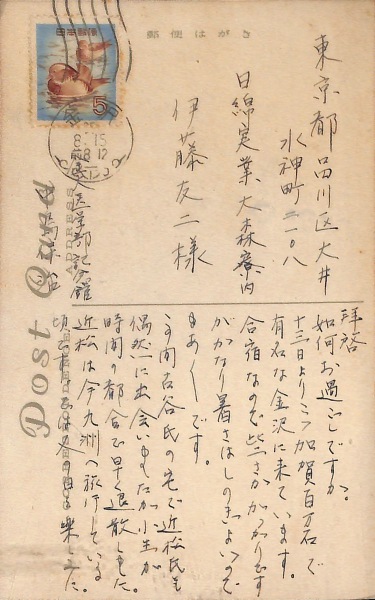 郵便はがき
日本郵便
5
8.15
前8-12
東京都品川区大井
水神町二一〇八
日綿実業大森寮内
伊藤友二様
医学部記念館
Post Card
ADDRESS
拝啓
如何お過しですか。
十三日より三つ加賀百万石で
有名な金沢に来ています。
合宿なので些さかがっかりです
がかなり暑さはしのぎよいので
まあまあです。
この間古谷氏の宅で近松氏と
偶然に出会いましたが小生が
時間の都合で早く退散しました。
近松は今九洲へ旅行している